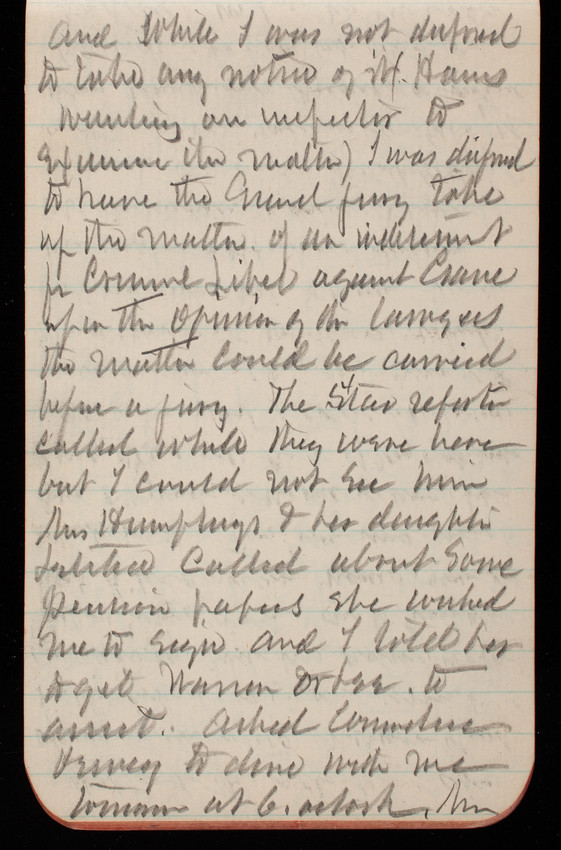 and while I was not disposed
to take any notice of it (Hains
wanting an inspector to
Examine the matter) I was disposed
to have the Grand jury take
up the matter of an indictment
for Criminal Libel against Crane
upon the Opinion of the lawyers
the matter could be carried
before a jury. The Star reporter
called while they were here
but I could not see him
Mrs Humphrys & her daughter
called about some
Pension papers she wished
me to sign and I told her
to get Warner or to
assist. Asked Commodore
to dine with me
tomorrow at 6. oclock, Mrs